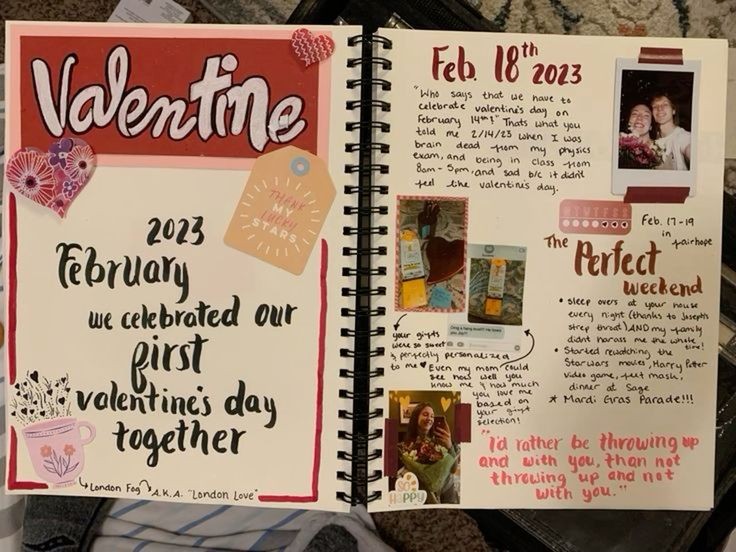 Valentine
THANK
MY
LUCKY
STARS
2023
February
we celebrated our
first
valentine's day
together
London Fog
A.K.A. "London Love"
Feb. 18th 2023
"Who says that we have to
celebrate valentine's day on
February 14th?" Thats what you
told me 2/14/23 when I was
brain dead from my physics
exam, and being in class from
8am - 5pm, and sad b/c it didn't
feel like valentine's day.
MTWTFSS
Feb. 17-19
in
fairhope
The Perfect
weekend
• Sleep overs at your house
every night (thanks to Joseph's
strep throat) AND my family
didnt harass me the whole
time!
• Started rewatching the
Starwars movies, Harry Potter
video game, feet mask,
dinner at Sage
* Mardi Gras Parade!!!
your gifts
were so sweet
& perfectly personalized
to me
Even my mom could
see how well you
know me & how much
you love me
based on
your gift
selection!
SO
HAPPY
"I'd rather be throwing up
and with you, than not
throwing up and not
with you."